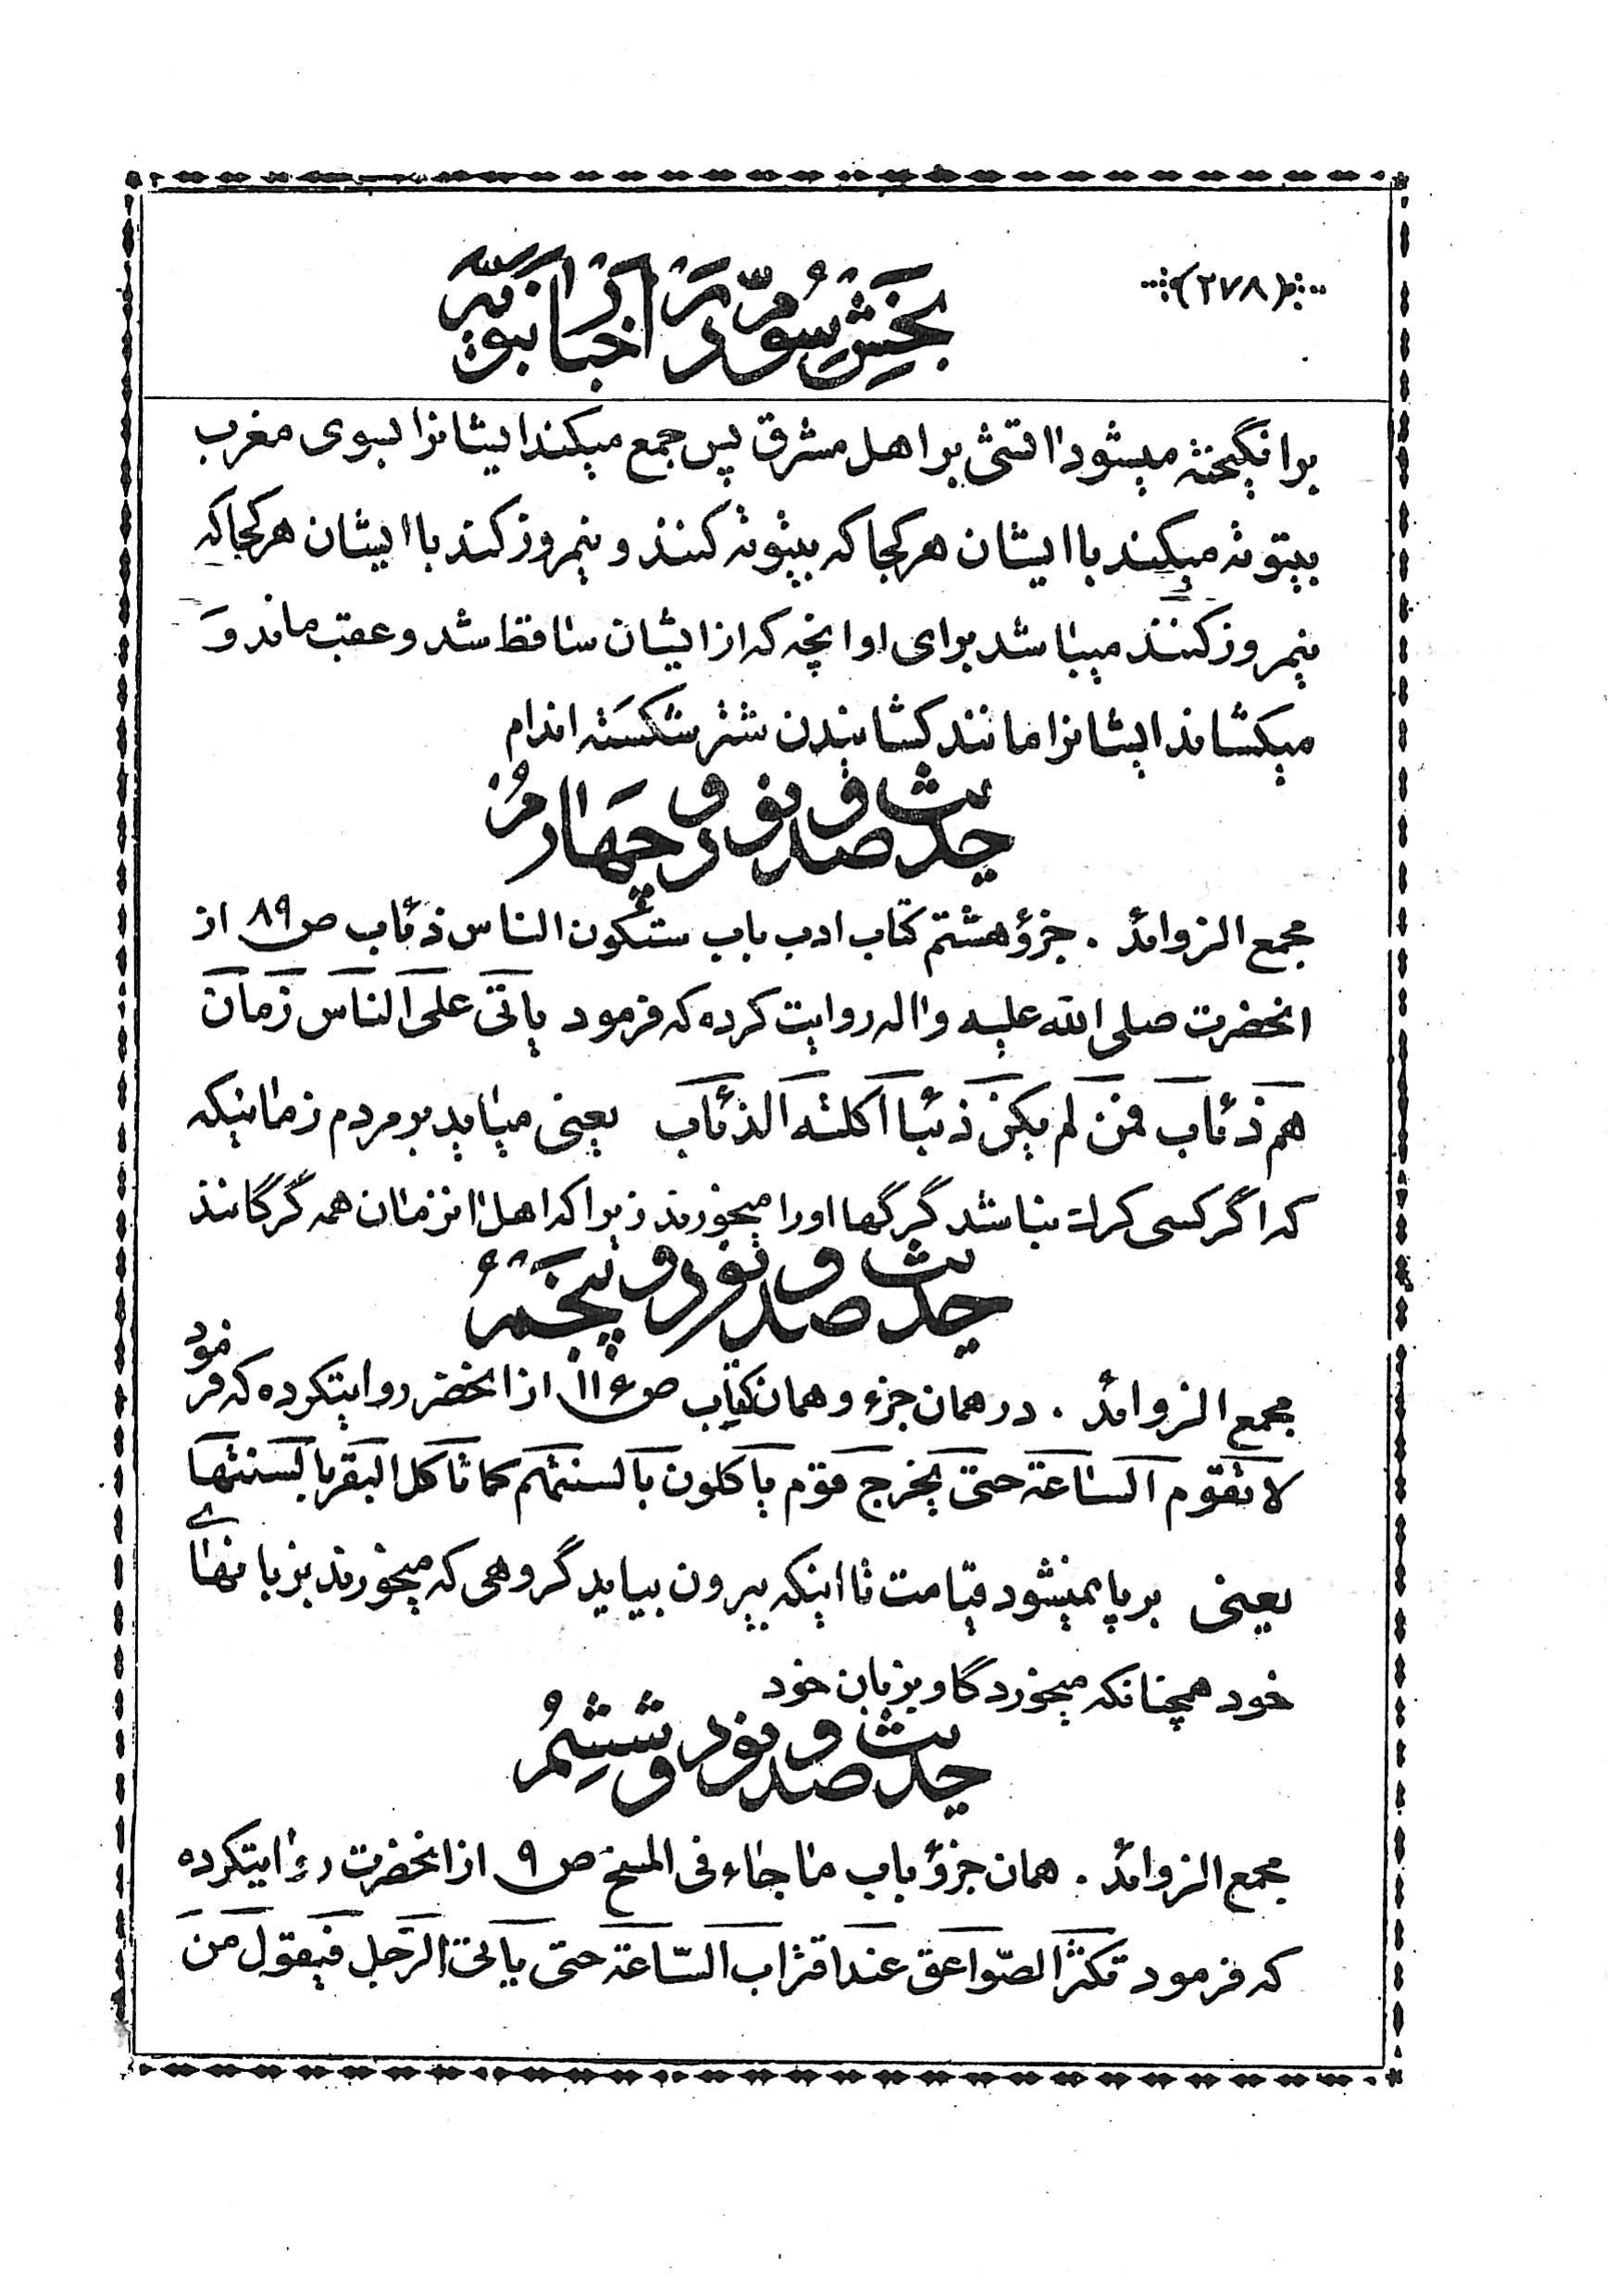 (۲۷۸)
بخش سوم در اخبار نبویه
برانگیخته میشود اتشی بر اهل مشرق پس جمع میکند ایشانرا بسوی مغرب
بیتوته میکند با ایشان هر کجا که بیتوته کنند و نیمروز کند با ایشان هر کجا که
نیمروز کنند میباشد برای او انچه که از ایشان ساقط شد و عقب ماند و
میکشاند ایشانرا مانند کشانیدن شتر شکسته اندام
حدیث صد و نود و چهارم
مجمع الزوائد . جزؤ هشتم کتاب ادب باب ستکون الناس ذئاب ص ۸۹ از
انحضرت صلی الله علیه و اله روایت کرده که فرمود یاتی علی الناس زمان
هم ذئاب فمن لم یکن ذئبا اکلته الذئاب یعنی میاید بر مردم زمانیکه
که اگر کسی کرك نباشد گرگها او را میخورند زیرا که اهل انزمان همه گرگانند
حدیث صد و نود و پنجم
مجمع الزوائد . در همان جزء و همان کتاب ص ۱۱۶ از انحضر روایتکرده که فرمود
لا تقوم الساعة حتی یخرج قوم یاکلون بالسنتهم کما تاکل البقر بالسنتها
یعنی برپا نمیشود قیامت تا اینکه بیرون بیاید گروهی که میخورند بزبانهای
خود همچنانکه میخورد گاو بزبان خود
حدیث صد و نود و ششم
مجمع الزوائد . همان جزؤ باب ما جاء فی المسخ ص ۹ از انحضرت روایتکرده
که فرمود تکثر الصّواعق عند اقتراب السّاعة حتی یاتی الرّجل فیقول من